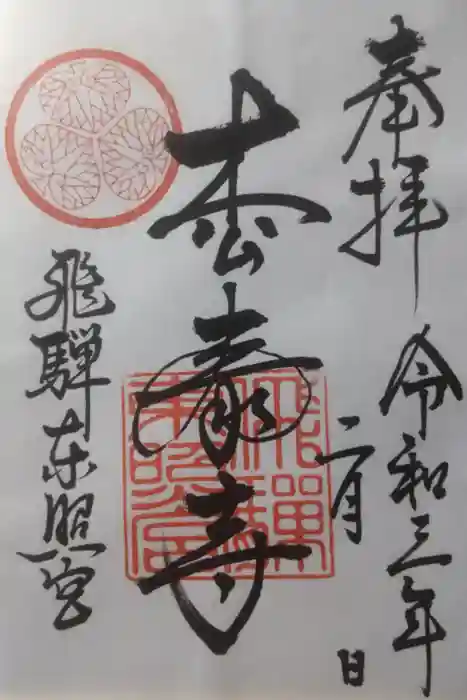 奉拝
令和三年
二月 日
松泰寺
飛騨東照宮
飛騨
東照宮